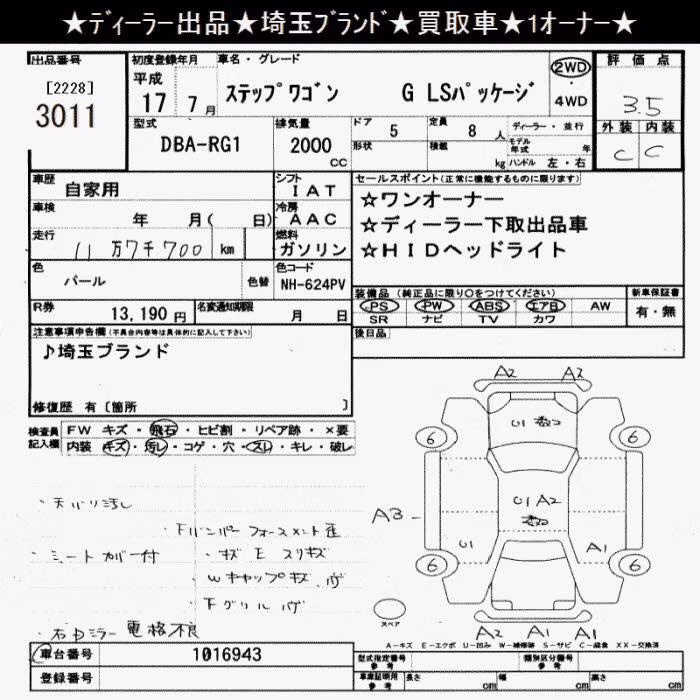 ★ディーラー出品★埼玉ブランド★買取車★1オーナー★
出品番号
[2228]
3011
初度登録年月
平成
17 年 7 月
車名・グレード
ステップワゴン G LSパッケージ
2WD
・
4WD
評価点
3.5
外装 内装
C C
型式
DBA-RG1
排気量
2000
CC
ドア 5
形状
定員 8 人
積載 kg
ディーラー・並行
モデル年式 年
ハンドル 左・右
車歴
自家用
シフト
IAT
車検
年 月( 日)
冷房
AAC
走行
11万7千700 km
燃料
ガソリン
色
パール
色替
色コード
NH-624PV
R券
13,190 円
名変通知期限
月 日
セールスポイント(正常に機能するものに限ります)
☆ワンオーナー
☆ディーラー下取出品車
☆HIDヘッドライト
装備品 (純正品に限り○をつけてください)
PS PW ABS エアB AW
SR ナビ TV カワ
新車保証書
有・無
後日品
注意事項申告欄(不具合内容等は具体的に記入して下さい)
♪埼玉ブランド
修復歴 有〔箇所 〕
検査員記入欄
FW キズ・飛石・ヒビ割・リペア跡・×要
内装 キズ・汚レ・コゲ・穴・スレ・キレ・破レ
・天バリ汚し
・下バンパーフォースメント歪
・シートカバー付
・キズ E スリキズ
・Wキャップキズ、
・下グリル
・右ドミラー 電格不良
A2 A2
U1
6 6
A3
U1 A2
U1
A1
6 6
スペア
A2 A1 A1
A-キズ E-エクボ U-凹み W-補修跡 S-サビ C-腐食 XX-交換済
車台番号
1016943
登録番号
型式指定番号
参考
類別区分番号
参考
車庫証明用
参考
長さ cm
幅 cm
高さ cm